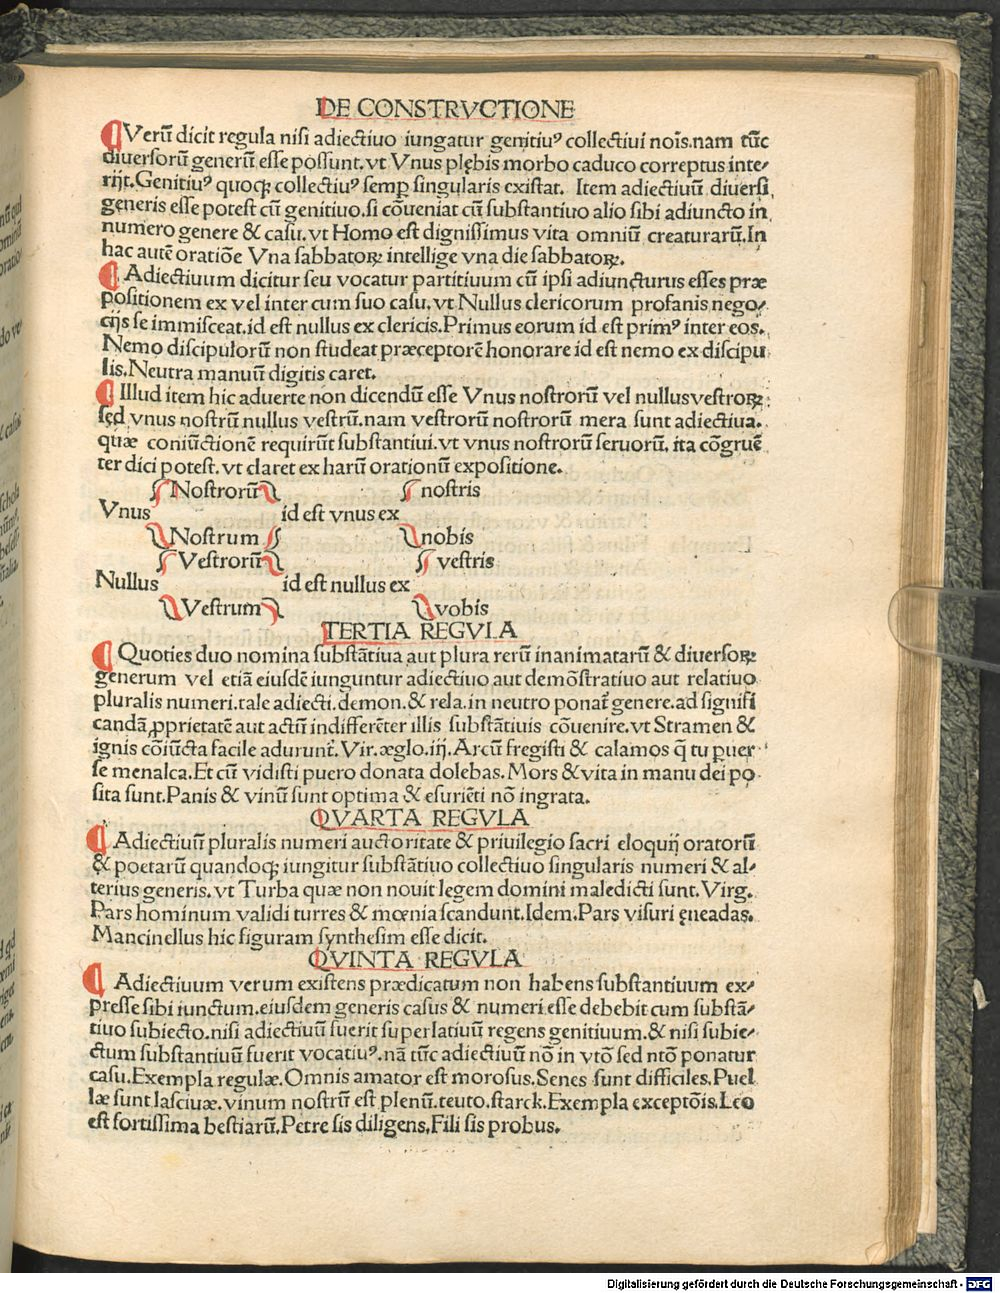 DE CONSTRVCTIONE
¶ Verū dicit regula nisi adiectiuo iungatur genitiuꝰ collectiui nois̄.nam tūc
diuersorū generū esse possunt.vt Vnus plębis morbo caduco correptus inte⸗
rijt.Genitiuꝰ quoqꝫ collectiuꝰ semꝑ singularis existat. Item adiectiuū diuersi
generis esse potest cū genitiuo.si cōueniat cū substantiuo alio sibi adiuncto in
numero genere & casu.vt Homo est dignissimus vita omniū creaturarū.In
hac autē oratiōe Vna sabbatoꝝ intellige vna die sabbatoꝝ.
¶ Adiectiuum dicitur seu vocatur partitiuum cū ipsi adiuncturus esses præ
positionem ex vel inter cum suo casu.vt Nullus clericorum profanis nego⸗
cijs se immisceat.id est nullus ex clericis.Primus eorum id est primꝰ inter eos.
Nemo discipulorū non studeat præceptorē honorare id est nemo ex discipu
lis.Neutra manuū digitis caret.
¶ Illud item hic aduerte non dicendū esse Vnus nostrorū vel nullus vestroꝝ:
sed vnus nostrū nullus vestrū.nam vestrorū nostrorū mera sunt adiectiua.
quæ coniūctionē requirūt substantiui.vt vnus nostrorū seruorū. ita cōgruē
ter dici potest. vt claret ex harū orationū expositione.
Nostrorū nostris
Vnus id est vnus ex
Nostrum nobis
Vestrorū vestris
Nullus id est nullus ex
Vestrum vobis
TERTIA REGVLA
¶ Quoties duo nomina substātiua aut plura rerū inanimatarū & diuersoꝝ
generum vel etiā eiusdē iunguntur adiectiuo aut demōstratiuo aut relatiuo
pluralis numeri.tale adiecti.demon.& rela.in neutro ponat᷑ genere.ad signifi
candā ꝓprietatē aut actū indifferēter illis substātiuis cōuenire.vt Stramen &
ignis cōiūcta facile adurunt᷑. Vir.æglo.iij.Arcū fregisti & calamos q̄ tu ꝑuer
se menalca.Et cū vidisti puero donata dolebas.Mors & vita in manu dei po
sita sunt.Panis & vinū sunt optima & esuriēti nō ingrata.
QVARTA REGVLA
¶ Adiectiuū pluralis numeri auctoritate & priuilegio sacri eloquij oratorū
& poetarū quandoqꝫ iungitur substātiuo collectiuo singularis numeri & al⸗
terius generis.vt Turba quæ non nouit legem domini maledicti sunt. Virg.
Pars hominum validi turres & mœnia scandunt.Idem.Pars visuri ęneadas.
Mancinellus hic figuram synthesim esse dicit.
QVINTA REGVLA
¶ Adiectiuum verum existens prædicatum non habens substantiuum ex⸗
presse sibi iunctum.eiusdem generis casus & numeri esse debebit cum substā⸗
tiuo subiecto.nisi adiectiuū fuerit superlatiuū regens genitiuum.& nisi subie⸗
ctum substantiuū fuerit vocatiuꝰ.nā tūc adiectiuū nō in vtō sed ntō ponatur
casu.Exempla regulæ.Omnis amator est morosus.Senes sunt difficiles.Puel
læ sunt lasciuæ.vinum nostrū est plenū.teuto.starck.Exempla exceptōis.Leo
est fortissima bestiarū.Petre sis diligens,Fili sis probus.
Digitalisierung gefördert durch die Deutsche Forschungsgemeinschaft - DFG